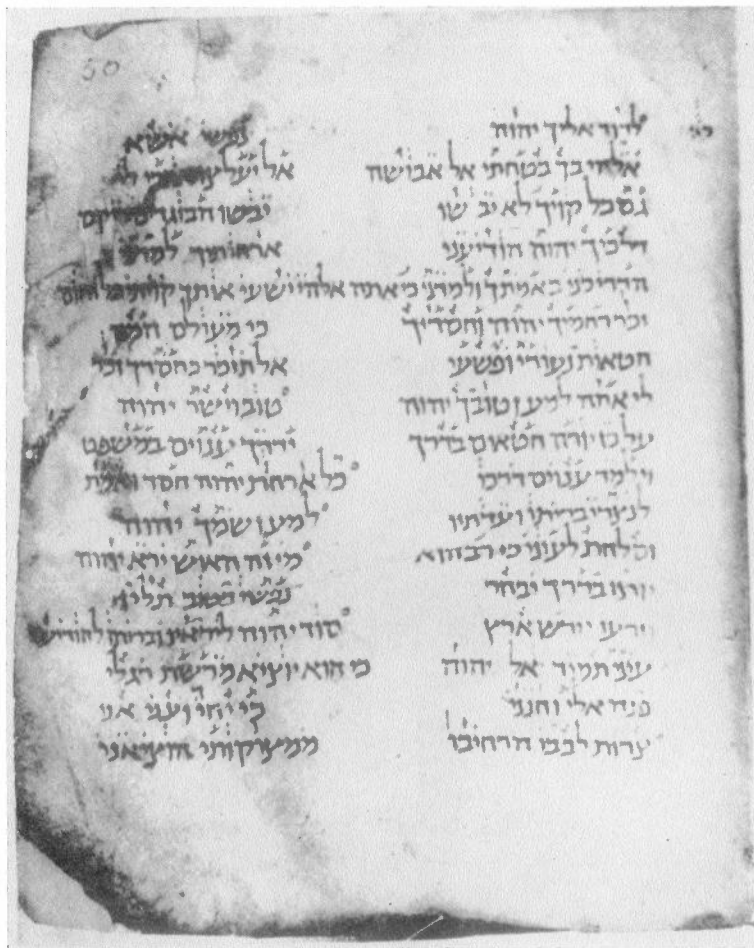 50
כה
לדוד אליך יהוה נפשי אשא
אלהי בך בטחתי אל אבושה אל יעלצו לי
גם כל קויך לא יב שו יבשו הבוגדים ריקם
דרכיך יהוה הודיעני ארחותיך למדני
הדריכני באמתך ולמדני כי אתה אלהי ישעי אותך קויתי כל היום
זכר רחמיך יהוה וחסדיך כי מעולם המה
חטאות נעורי ופשעי אל תזכר כחסדך זכר
לי אתה למען טובך יהוה טוב וישר יהוה
על כן יורה חטאים בדרך ידרך ענוים במשפט
וילמד ענוים דרכו כל ארחת יהוה חסד ואמת
לנצרי בריתו ועדתיו למען שמך יהוה
וסלחת לעוני כי רב הוא מי זה האיש ירא יהוה
יורנו בדרך יבחר נפשו בטוב תלין
וזרעו יירש ארץ סוד יהוה ליראיו ובריתו להודיעם
עיני תמיד אל יהוה כי הוא יוציא מרשת רגלי
פנה אלי וחנני כי יחיד ועני אני
צרות לבבי הרחיבו ממצוקותי הוציאני